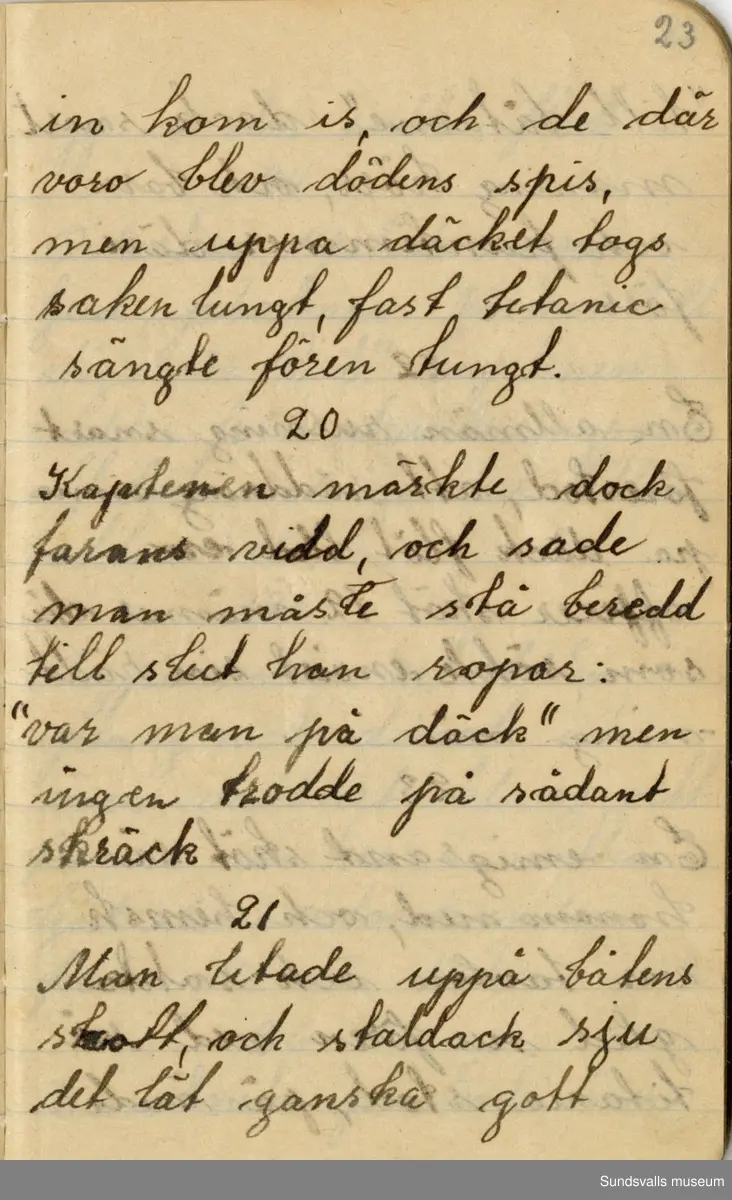 23
in kom is, och de där
voro blev dödens spis,
men uppa däcket togs
saken lungt, fast titanic
sängte fören tungt.
20
Kaptenen märkte dock
farans vidd, och sade
man måste stå beredd
till slict han ropar:
"var man på däck" men
ingen trodde på sådant
skräck
21
Man litade uppå båtens
skott, och staldack sju
det lät ganska gott
Sundsvalls museum